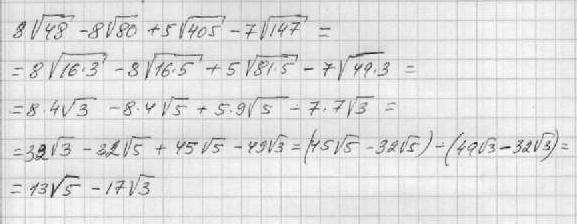 8√48 - 8√80 + 5√405 - 7√147 =
= 8√16·3 - 8√16·5 + 5√81·5 - 7√49·3 =
= 8·4√3 - 8·4√5 + 5·9√5 - 7·7√3 =
= 32√3 - 32√5 + 45√5 - 49√3 = (45√5 - 32√5) - (49√3 - 32√3) =
= 13√5 - 17√3